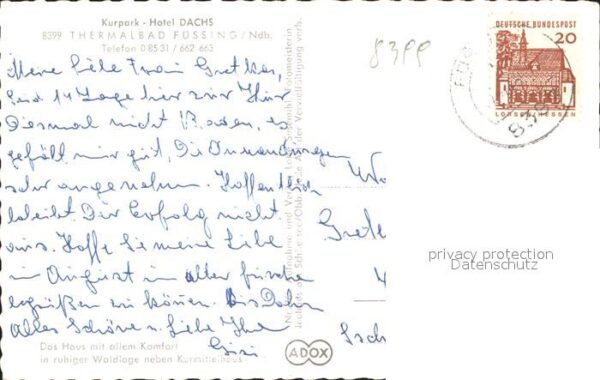 Kurpark - Hotel DACHS
8399 THERMALBAD FÜSSING/Ndb.
Telefon 0 85 31 / 662 663
8399
DEUTSCHE BUNDESPOST
20
LORSCH/HESSEN
Meine liebe Frau
14 Tage hier zur Kur
Diesmal nicht Baden, es
gefällt mir gut, Die Anwendungen
sehr angenehm. Hoffentlich
bleibt Der Erfolg nicht
aus. Hoffe Sie meine Liebe
im August in alter Frische
begrüßen zu können. Bis Dahin
alles Schöne u. Liebe Ihre
Gisi
privacy protection
Datenschutz
Das Haus mit allem Komfort
in ruhiger Waldlage neben Kurmittelhaus
ADOX